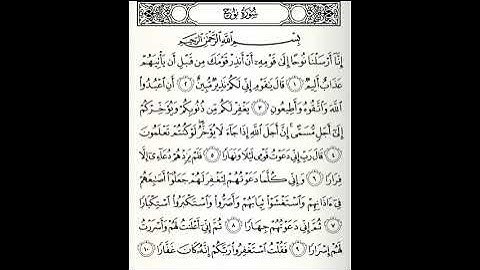 سُورَةُ نُوحٍ
بِسْمِ ٱللَّهِ ٱلرَّحْمَٰنِ ٱلرَّحِيمِ
إِنَّآ أَرْسَلْنَا نُوحًا إِلَىٰ قَوْمِهِۦٓ أَنْ أَنذِرْ قَوْمَكَ مِن قَبْلِ أَن يَأْتِيَهُمْ
عَذَابٌ أَلِيمٌ ١ قَالَ يَٰقَوْمِ إِنِّى لَكُمْ نَذِيرٌ مُّبِينٌ ٢ أَنِ ٱعْبُدُوا۟
ٱللَّهَ وَٱتَّقُوهُ وَأَطِيعُونِ ٣ يَغْفِرْ لَكُم مِّن ذُنُوبِكُمْ وَيُؤَخِّرْكُمْ
إِلَىٰٓ أَجَلٍ مُّسَمًّى إِنَّ أَجَلَ ٱللَّهِ إِذَا جَآءَ لَا يُؤَخَّرُ لَوْ كُنتُمْ تَعْلَمُونَ
٤ قَالَ رَبِّ إِنِّى دَعَوْتُ قَوْمِى لَيْلًا وَنَهَارًا ٥ فَلَمْ يَزِدْهُمْ دُعَآءِىٓ إِلَّا
فِرَارًا ٦ وَإِنِّى كُلَّمَا دَعَوْتُهُمْ لِتَغْفِرَ لَهُمْ جَعَلُوٓا۟ أَصَٰبِعَهُمْ
فِىٓ ءَاذَانِهِمْ وَٱسْتَغْشَوْا۟ ثِيَابَهُمْ وَأَصَرُّوا۟ وَٱسْتَكْبَرُوا۟ ٱسْتِكْبَارًا
٧ ثُمَّ إِنِّى دَعَوْتُهُمْ جِهَارًا ٨ ثُمَّ إِنِّىٓ أَعْلَنتُ لَهُمْ وَأَسْرَرْتُ
لَهُمْ إِسْرَارًا ٩ فَقُلْتُ ٱسْتَغْفِرُوا۟ رَبَّكُمْ إِنَّهُۥ كَانَ غَفَّارًا ١٠